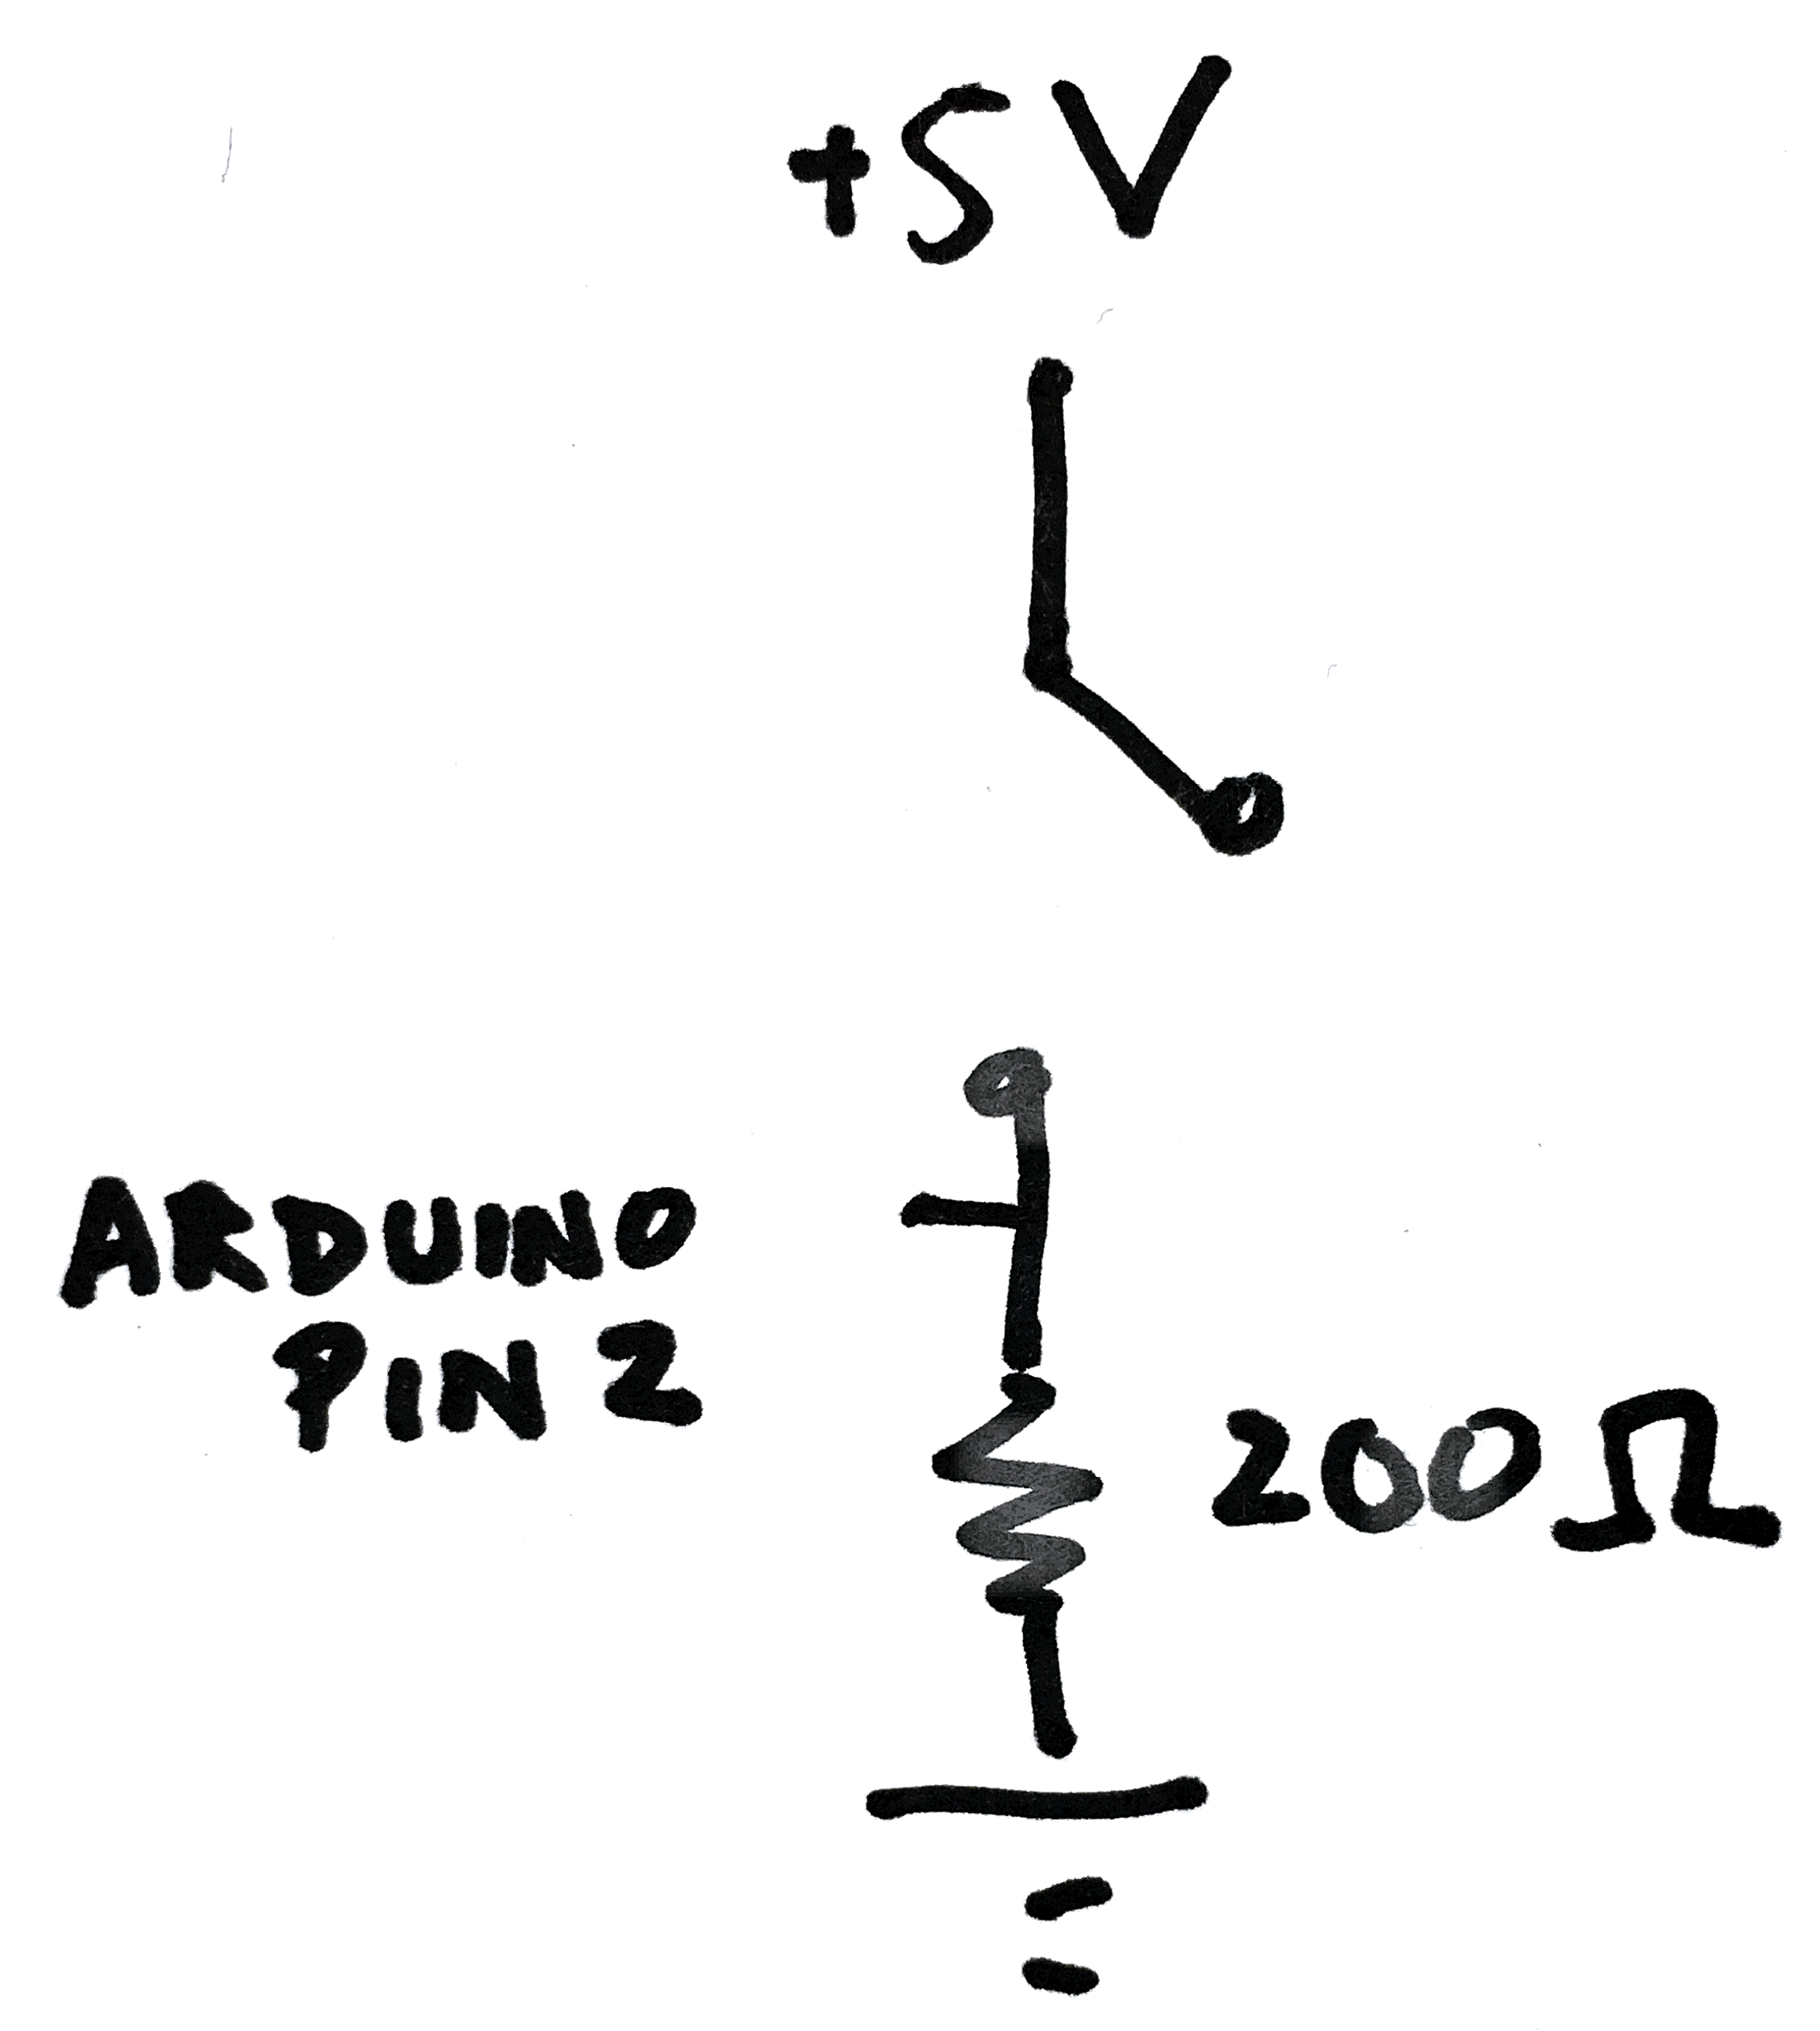 +5V
ARDUINO
PIN 2
200Ω